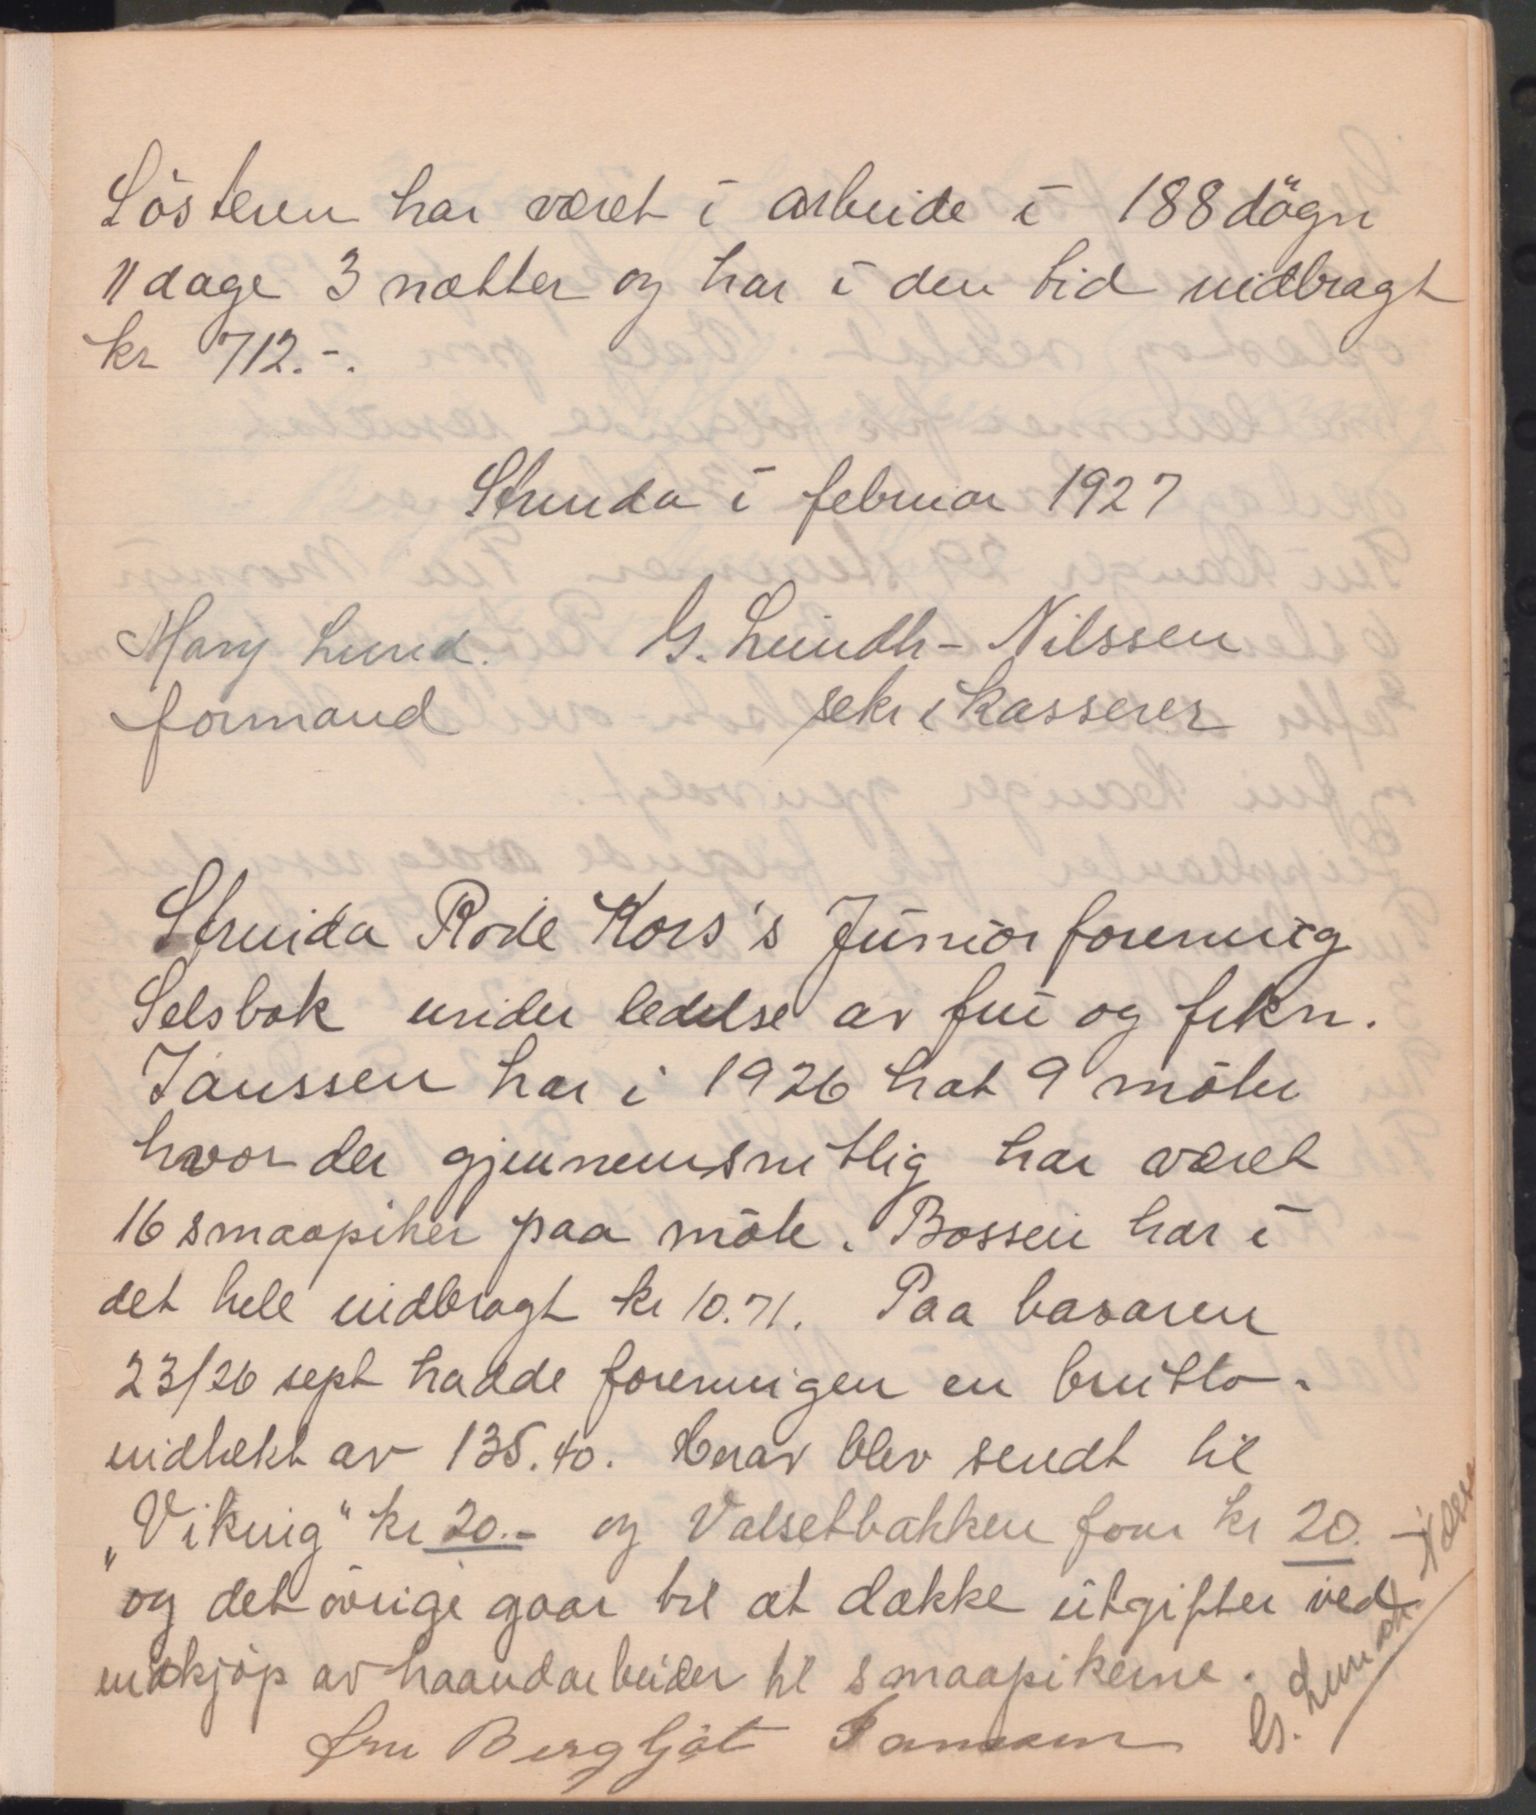 Söstern har været i arbeide i 188 dögn
11 dage 3 nætter og har i den tid indbragt
kr 712.-.
Strinda i februar 1927
Mary Lund. G. Lundh-Nilssen
formand sekr i kasserer
Strinda Röde Kors's Juniorforening
Selsbak under ledelse av fru og frkn.
Janssen har i 1926 hat 9 möter
hvor der gjennemsnitlig har været
16 smaapiker paa möte. Bössen har i
det hele indbragt kr 10.71. Paa basaren
23/26 sept hadde foreningen en brutto-
indtekt av 135.40. Herav blev sendt til
„Viking" kr 20.- og Valsetbakken four kr 20.-
og det övrige gaar til at dække utgifter ved
indkjöp av haandarbeider til smaapikerne.
fru Bergljot Janssen G. Lundh-Nilssen